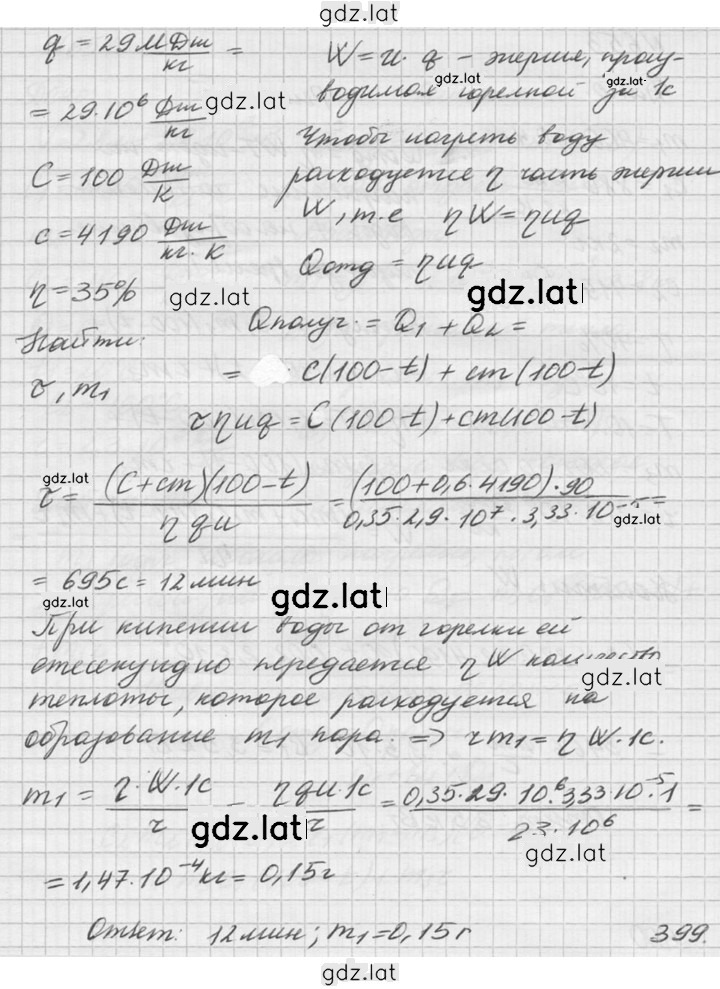 gdz.lat
q = 29 МДж/кг =
= 29·10⁶ Дж/кг
gdz.lat
C = 100 Дж/К
c = 4190 Дж/кг·К
η = 35%
gdz.lat
Найти:
τ, m₁
W = u·q – энергия, произ-
gdz.lat
водимая горелкой за 1с
Чтобы нагреть воду
расходуется η часть энергии
W, т.е ηW = ηuq
Qотд = ηuq
gdz.lat
Qполуч. = Q₁ + Q₂ =
= C(100-t) + cm(100-t)
τηuq = C(100-t) + cm(100-t)
gdz.lat
τ = (C+cm)(100-t)/ηqu = (100+0,6·4190)·90/0,35·2,9·10⁷·3,33·10⁻⁵ =
gdz.lat
= 695с = 12мин
gdz.lat
gdz.lat
При кипении воды от горелки ей
ежесекундно передается ηW
gdz.lat
теплоты, которое расходуется на
образование m₁ пара. => rm₁ = ηW·1с.
m₁ = η·W·1с/r = ηqu·1с/r = 0,35·29·10⁶·3,33·10⁻⁵·1/23·10⁶ =
gdz.lat
gdz.lat
= 1,47·10⁻⁴кг = 0,15г
Ответ: 12мин; m₁=0,15г
399.
gdz.lat